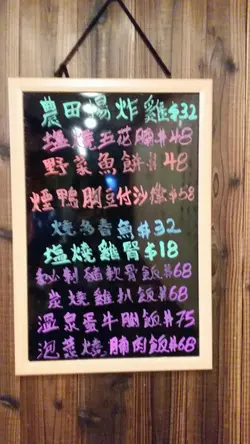 農田揚炸雞$32
塩燒五花腩$48
野菜魚餅$48
煙鴨胸豆付沙律$58
燒多春魚$32
塩燒雞腎$18
秘制豬軟骨飯$68
炭燒雞扒飯$68
溫泉蛋牛胸飯$75
泡菜燒腩肉飯$68